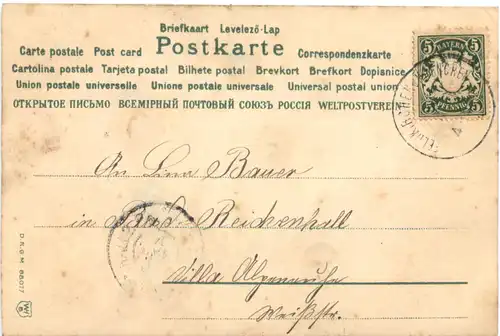 Briefkaart Levelező-Lap
Carte postale Post card Postkarte Correspondenzkarte
Cartolina postale Tarjeta postal Bilhete postal Brevkort Brefkort Dopisnice
Union postale universelle Unione postale universale Universal postal union
ОТКРЫТОЕ ПИСЬМО ВСЕМІРНЫЙ ПОЧТОВЫЙ СОЮЗЪ РОССІЯ WELTPOSTVEREIN
5 BAYERN 5
5 PFENNIG 5
An Lina Bauer
in Bad Reichenhall
Villa Alpenruhe
Weißstr.
D.R.G.M. 88077